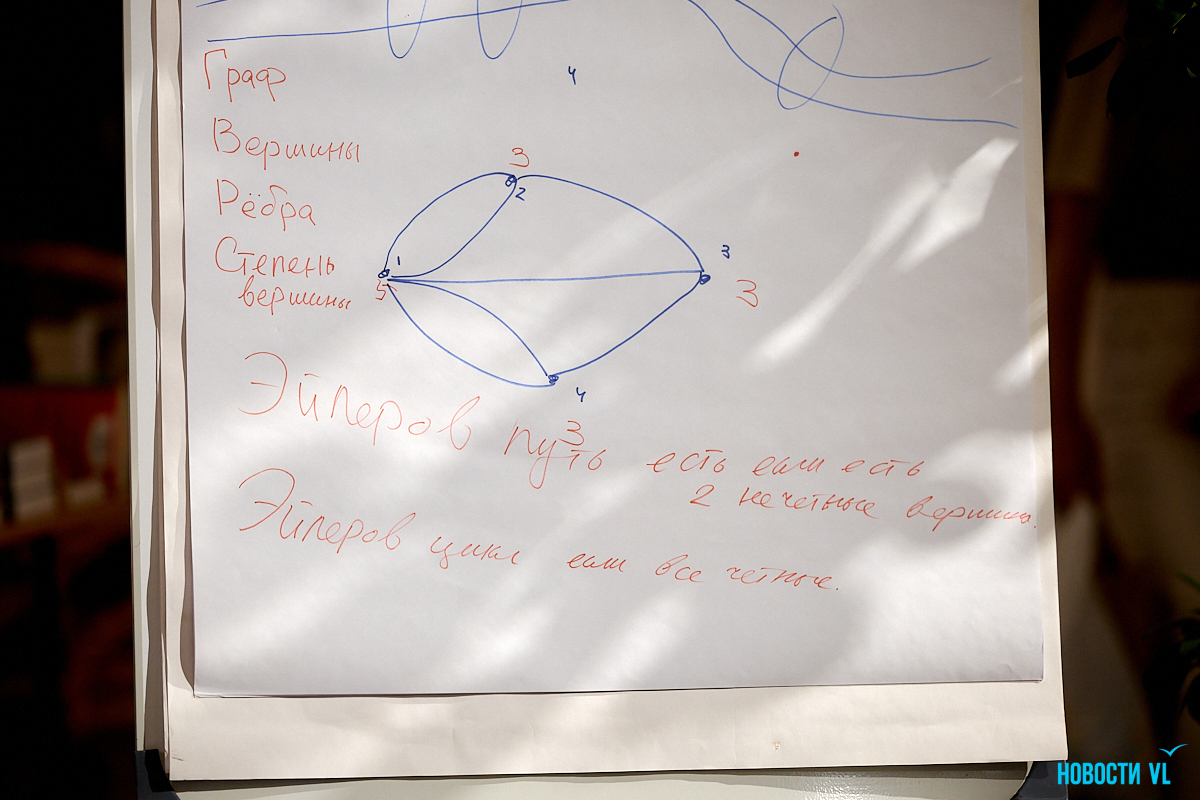 4
Граф
Вершины
Рёбра
Степень
вершины
3
2
1
5
3
3
4
3
Эйлеров путь есть если есть
2 нечетные вершины.
Эйлеров цикл если все четные.
НОВОСТИ VL